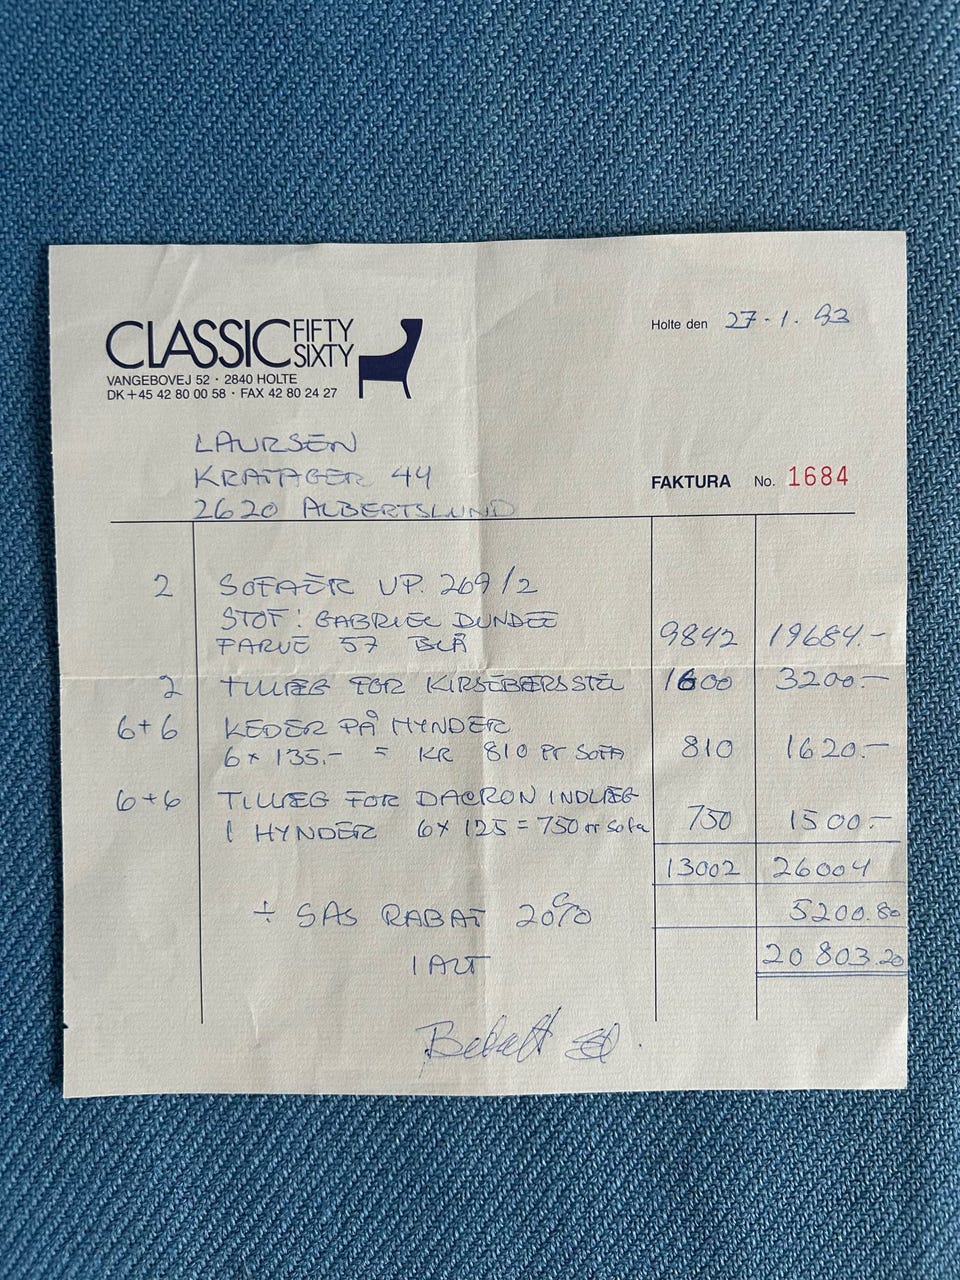 CLASSIC FIFTY SIXTY
VANGEBOVEJ 52 · 2840 HOLTE
DK+45 42 80 00 58 · FAX 42 80 24 27
Holte den 27-1.93
LAURSEN
KRATAGER 44
2620 ALBERTSLUND
FAKTURA No. 1684
2 SOFAER UP. 269/2
STOF: GABRIEL DUNDEE
FARVE 57 BLÅ 9842 19684.-
2 TILLÆG FOR KIRSEBÆRSSTEL 1600 3200.-
6+6 KEDER PÅ HYNDER
6 x 135.- = KR 810 pr SOFA 810 1620.-
6+6 TILLÆG FOR DACRON INDLÆG
I HYNDER 6x 125 = 750 pr sofa 750 1500.-
13002 26004
÷ SAS RABAT 20% 5200.80
I ALT 20 803.20
Betalt